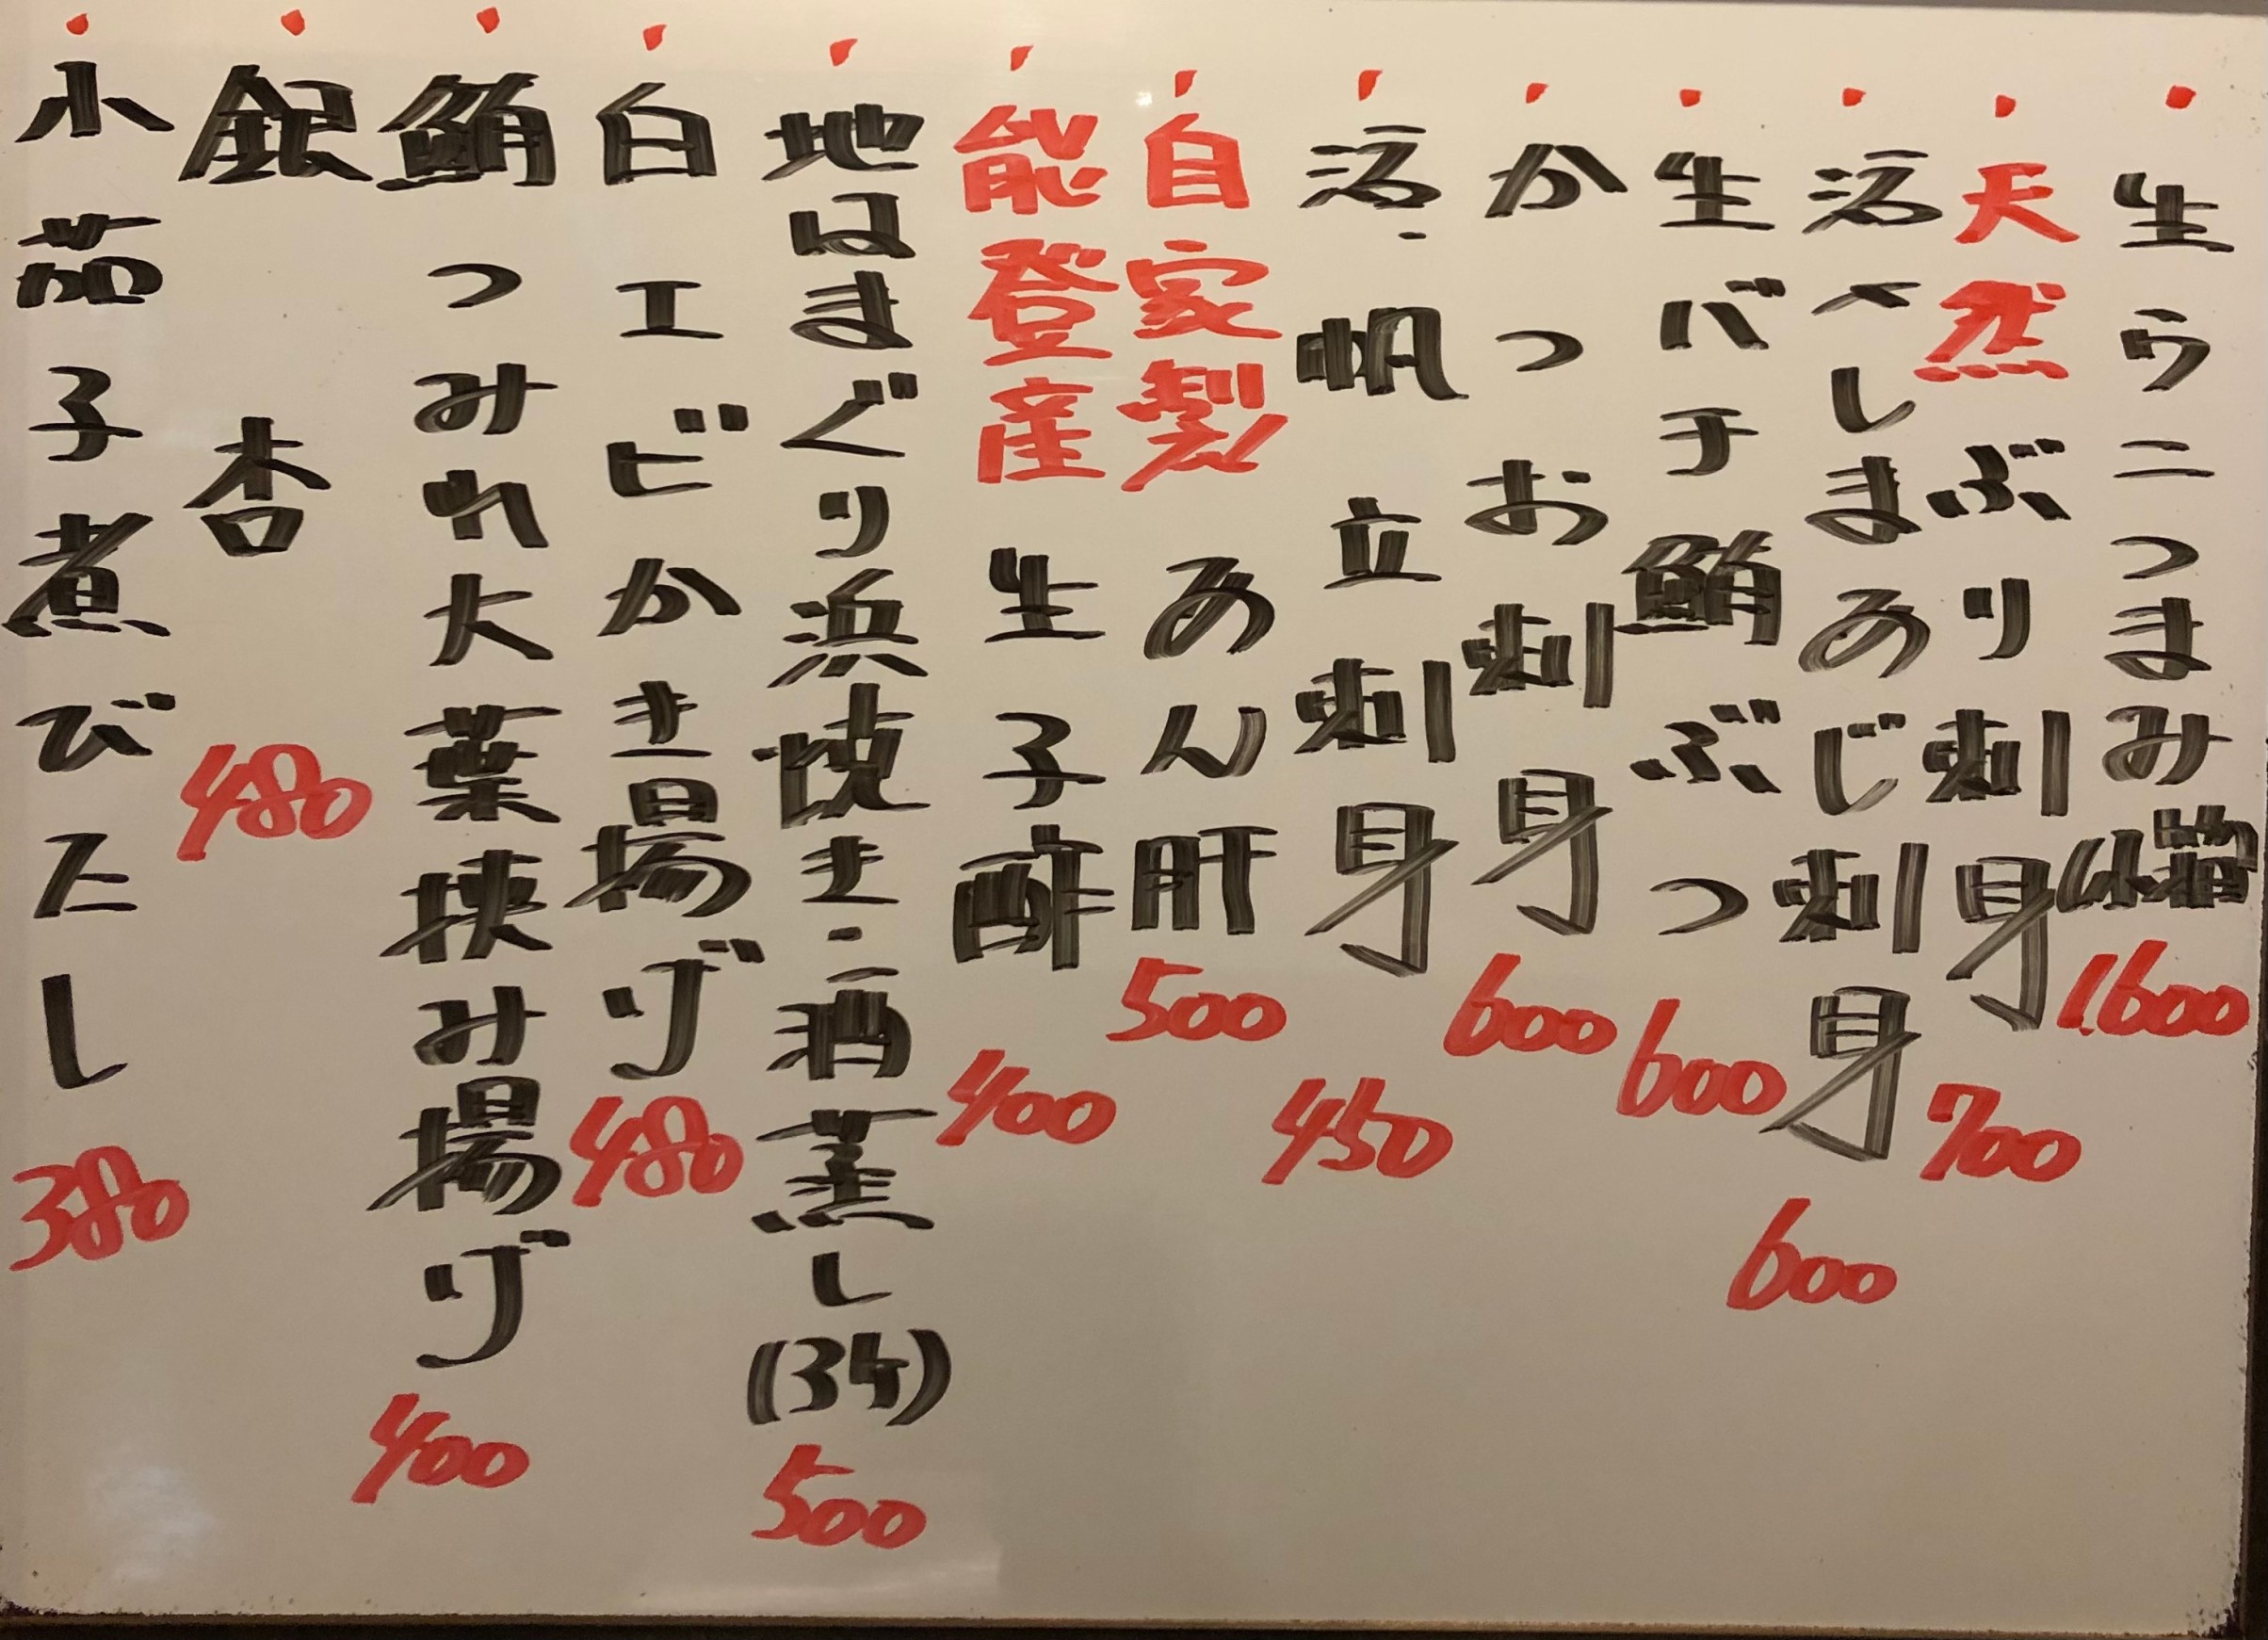 生ウニつまみ(小箱) 1.600
天然ぶり刺身 700
活〆しまあじ刺身 600
生バチ鮪ぶつ 600
かつお刺身 600
活・帆立刺身 450
自家製あん肝 500
能登産生子酢 400
地はまぐり浜焼き・酒蒸し(3ケ) 500
白エビかき揚げ 480
鮪つみれ大葉挟み揚げ 400
銀杏 480
小茄子煮びたし 380